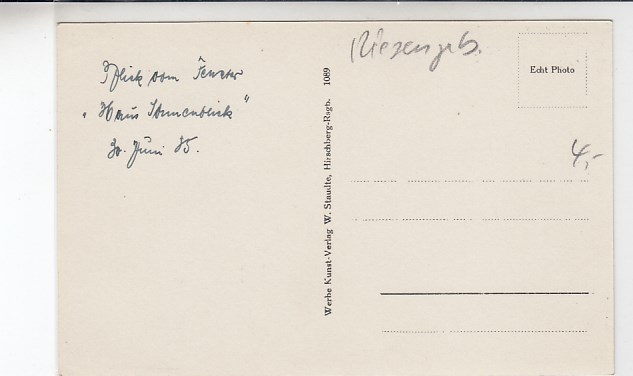 Blick vom Fenster
„Haus Sonnenblick"
30. Juni 35.
Riesengeb.
Echt Photo
4,-
Werbe Kunst-Verlag W. Staudte, Hirschberg-Rsgb. 1089